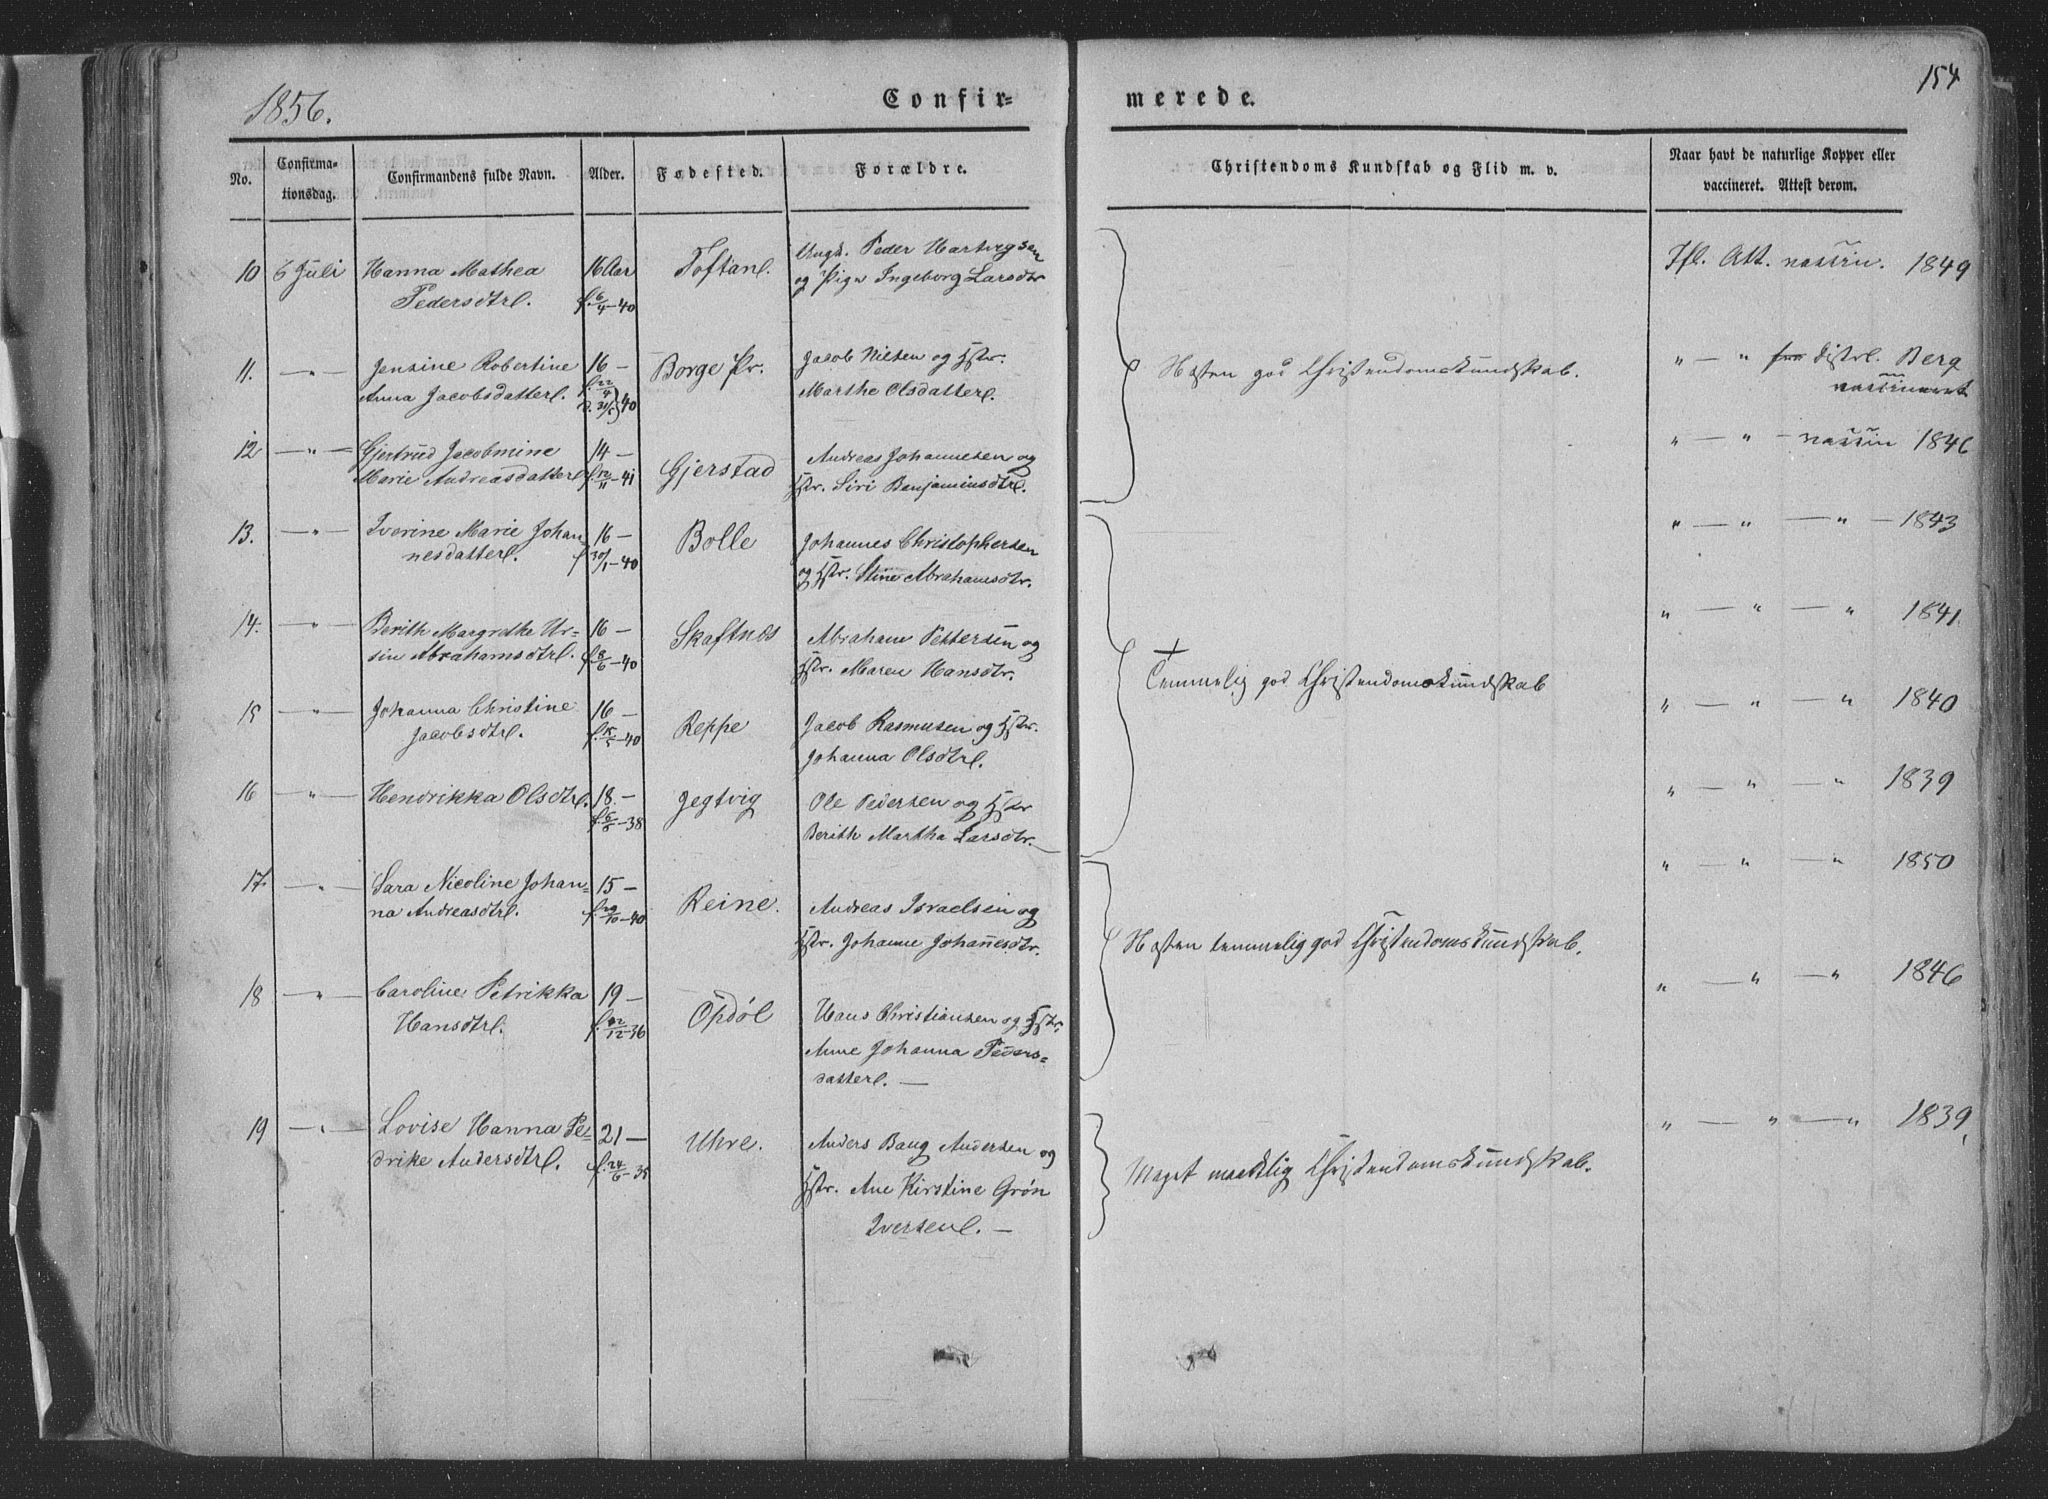 1856.
Confir=
merede.
154
No.
Confirma-
tionsdag.
Confirmandens fulde Navn.
Alder.
Fødested.
Forældre.
Christendoms Kundskab og Flid m. v.
Naar havt de naturlige Kopper eller
vaccineret. Attest derom.
10 6 Juli Hanna Mathea 16 Aar Toftan. Ungk. Peder Hartvigsen Ifl. Att. vaccin. 1849
Pedersdtr. f. 6/4-40 og Pige Ingeborg Larsdtr
11. — " — Jensine Robertine 16 — Borge Pr. Jacob Nilsen og Hstr. " — " distr. Berg
Anna Jacobsdatter. f. 22/4 40 Marthe Olsdatter. vaccineret
Næsten god Christendomskundskab.
12 — " — Gjertrud Jacobmine 14 — Gjerstad Andreas Johannesen og " — " — vaccin 1846
Marie Andreasdatter f. 12/11-41 Hstr. Siri Benjaminsdtr.
13. — " — Iverine Marie Johan= 16 — Bolle Johannes Christophersen " — " — " — 1843
nesdatter. f 30/1-40 og Hstr. Stine Abrahamsdtr.
14. — " — Berith Margrethe Ur= 16 — Skaftnes Abraham Pettersen og " — " — " 1841.
sin Abrahamsdtr. f. 8/6-40 Hstr. Maren Hansdtr.
Temmelig god Christendomskundskab
15 — " — Johanna Christine 16 — Reppe Jacob Rasmusen og Hstr. " — " — " 1840
Jacobsdtr. f. 15/5-40 Johanna Olsdtr.
16 — " — Hendrikka Olsdtr. 18. — Jegtvig Ole Pedersen og Hstr " — " — " 1839
-38 Berith Martha Larsdtr. —
17. — " — Sara Nicoline Johan= 15 — Reine. Andreas Israelsen og " — " — " 1850
na Andreasdtr. f. 29/10-40 Hstr. Johanne Johannesdtr.
Næsten temmelig god Christendomskundskab.
18 — " — Caroline Petrikka 19 — Opdøl Hans Christiansen og Hstr. " — " — " 1846
Hansdtr. /12-36 Anne Johanna Peders=
datter. —
19 — " — Lovise Hanna Pe= 21 — Uhre. Anders Baug Andersen og " — " — " 1839,
drike Andersdtr. f. 24/6-35 Hstr. Ane Kirstine Grøn
Iversen. —
Meget maadelig Christendomskundskab.